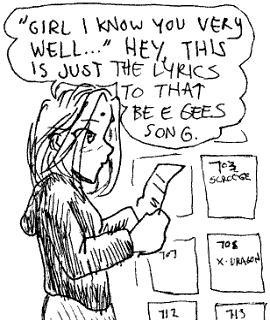 "GIRL I KNOW YOU VERY
WELL..." HEY, THIS
IS JUST THE LYRICS
TO THAT
BE E GEES
SONG.
703
SCROOGE
707
708
X-DRAGON
712
713